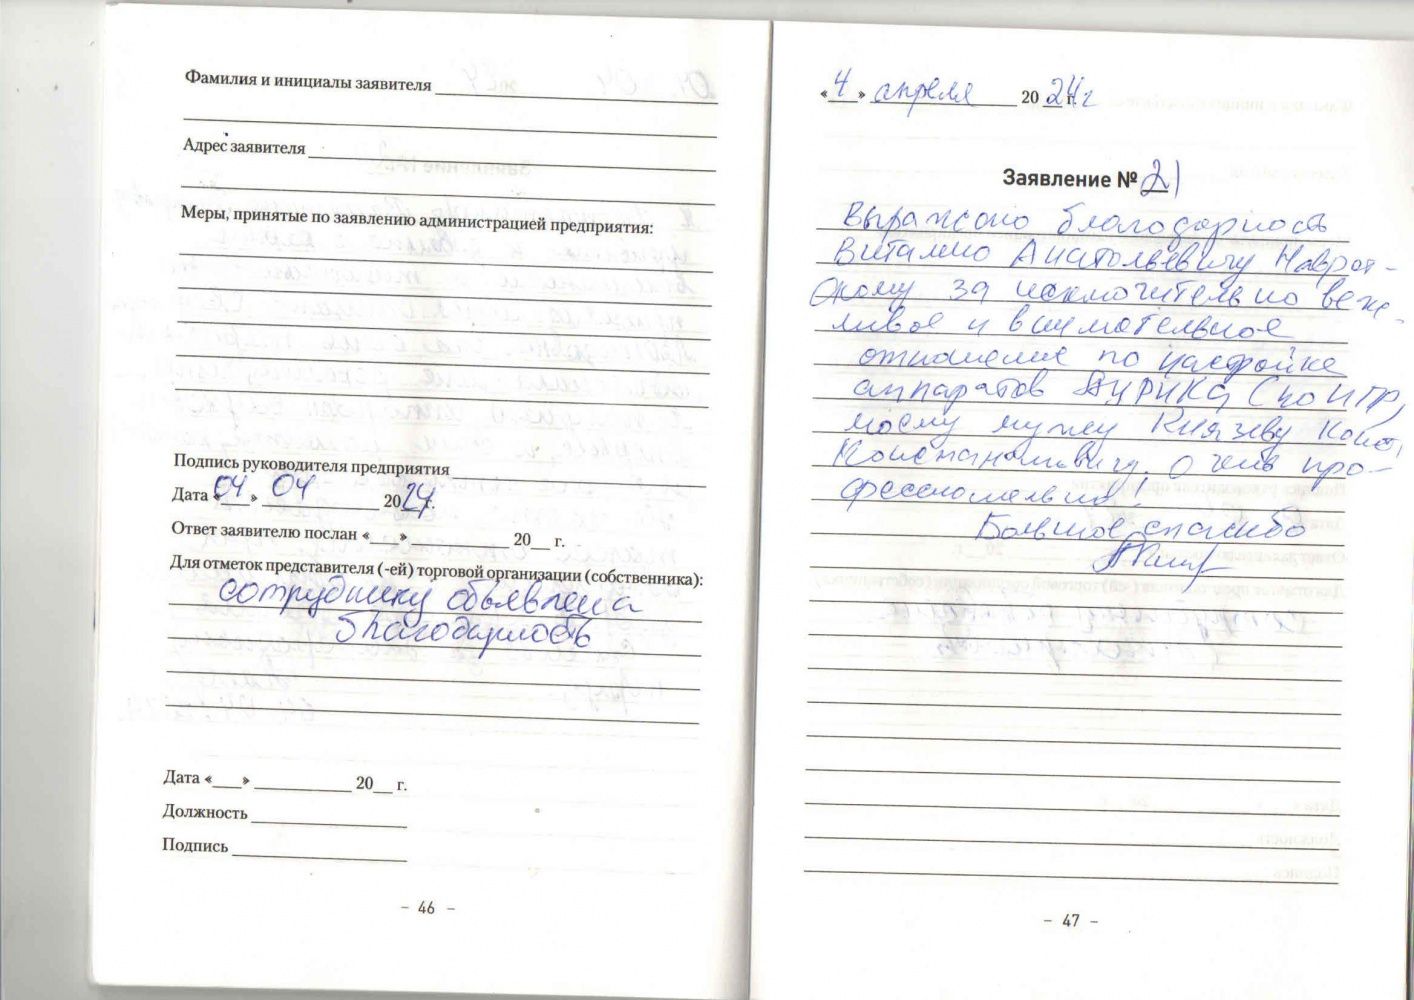 Фамилия и инициалы заявителя
Адрес заявителя
Меры, принятые по заявлению администрацией предприятия:
Подпись руководителя предприятия
Дата «04» 04 2024 г.
Ответ заявителю послан «___» ____________ 20__ г.
Для отметок представителя (-ей) торговой организации (собственника):
сотруднику объявлена
благодарность
Дата «___» ____________ 20__ г.
Должность
Подпись
– 46 –
«4» апреля 2024 г.
Заявление № 21
Выражаю благодарность
Виталию Анатольевичу Наврот-
скому за исключительно веж-
ливое и внимательное
отношение по настройке
аппаратов
моему мужу Князеву Конст.
Константиновичу. Очень про-
фессионально!
Большое спасибо
– 47 –